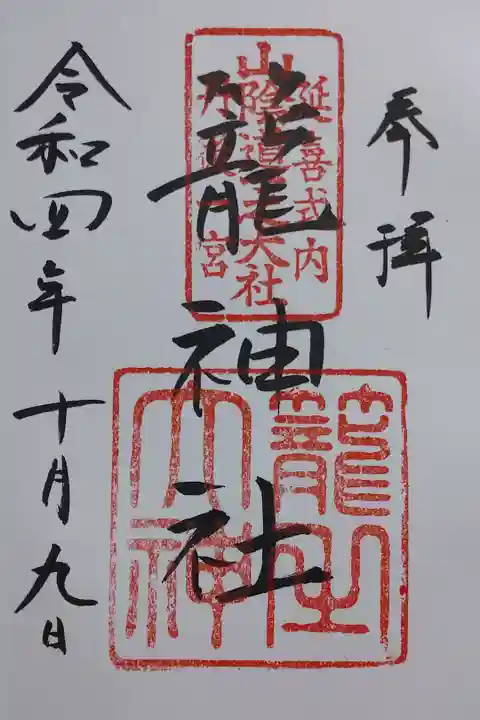 奉拝
延喜式内
山陰道一之大社
丹後一宮
籠神社
籠之大神
令和四年十月九日